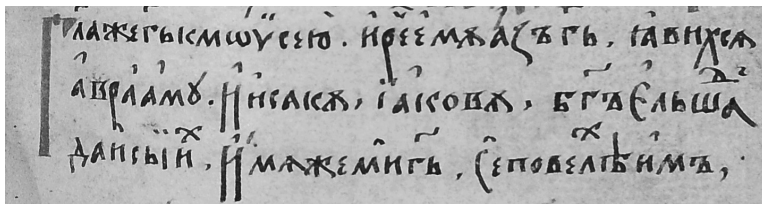 глажегькмѡѵ̈сею̀. и҆рече́емꙗа҆зъг҃ь, ꙗ҆вихсѧ
а҆враа́мꙋ. и҆и҆сакѫ, і҆а҆ковѫ, бг҃ъє҆льшадⷭ҇а
даи҆сы́иⷯ, и҆и҆мѧжемѝг҃ь, сеповелѣⷯи҆мъ,